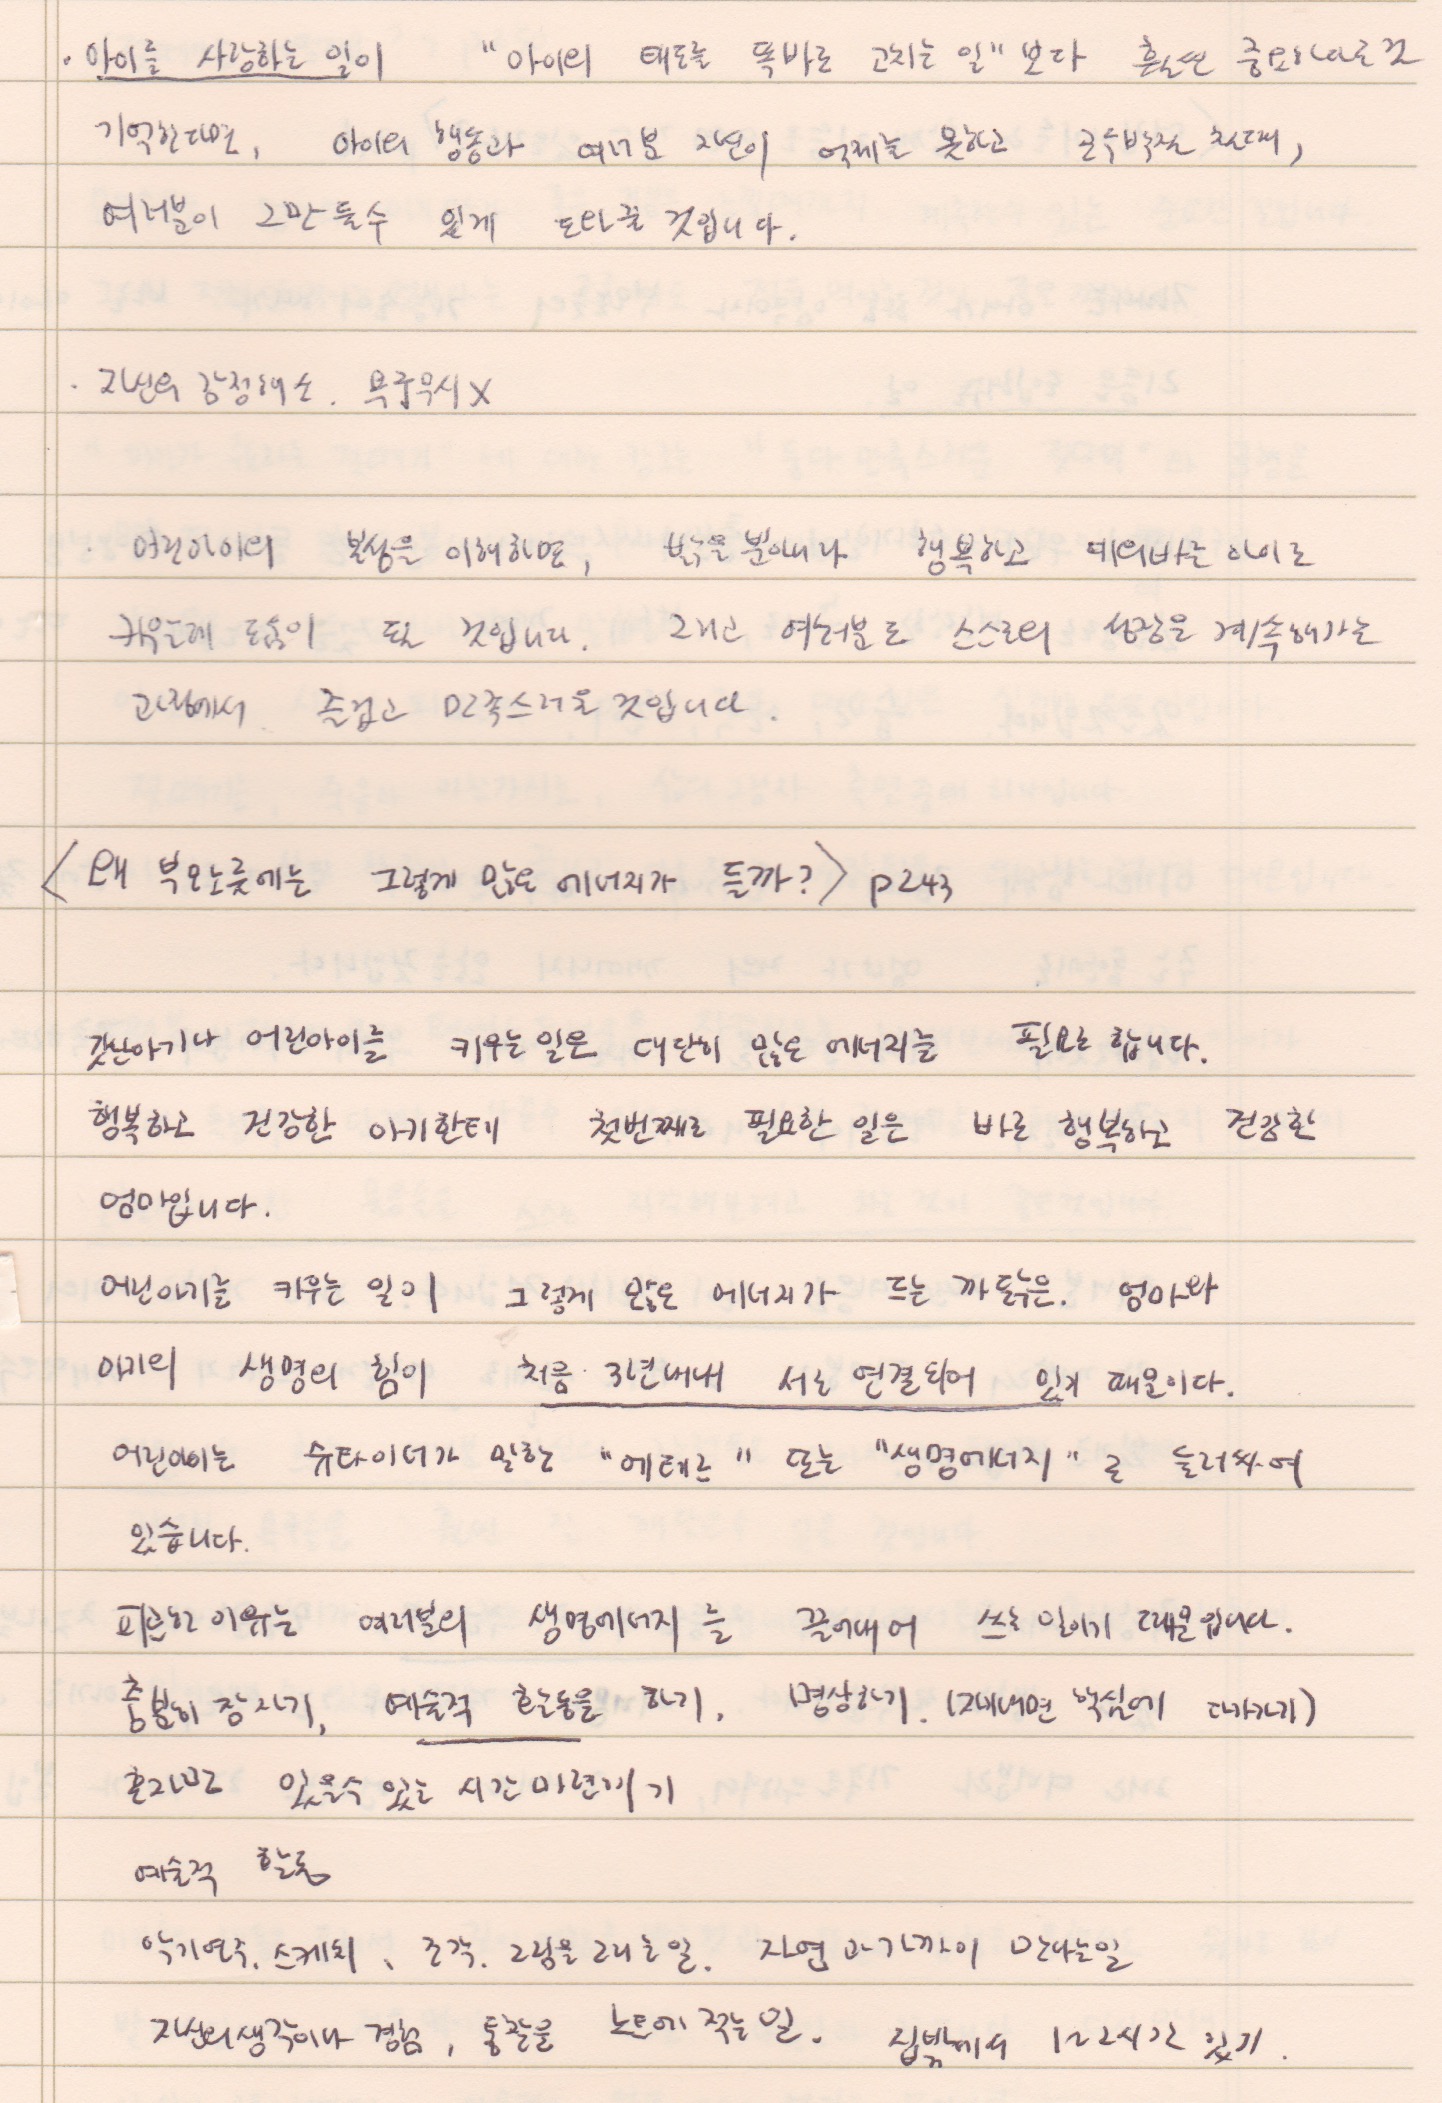 · 아이를 사랑하는 일이 "아이의 태도를 똑바로 고치는 일" 보다 훨씬 중요하다는 것
기억한다면, 아이의 행동과 여러분 자신이 억제를 못하고 할때,
여러분이 그만 둘수 있게 도와줄 것입니다.
· 자신의 감정해소. 욕구무시 X
· 어린아이의 본성을 이해하면, 밝을 뿐아니라 행복하고 예의바른 아이로
키우는데 도움이 될 것입니다. 그리고 여러분도 스스로의 성장을 계속해가는
과정에서 즐겁고 만족스러울 것입니다.
<왜 부모노릇에는 그렇게 많은 에너지가 들까?> p243
갓난아기나 어린아이를 키우는 일은 대단히 많은 에너지를 필요로 합니다.
행복하고 건강한 아기한테 첫번째로 필요한 일은 바로 행복하고 건강한
엄마입니다.
어린아기를 키우는 일이 그렇게 많은 에너지가 드는 까닭은. 엄마와
아기의 생명의 힘이 처음 3년내내 서로 연결되어 있기 때문이다.
어린아이는 슈타이너가 말한 "에테르" 또는 "생명에너지"로 둘러싸여
있습니다.
피곤한 이유는 여러분의 생명에너지를 끌어내어 쓰는 일이기 때문입니다.
충분히 잠자기, 예술적 활동을 하기, 명상하기. (자내면 핵심에 다가가기)
혼자만 있을수 있는 시간 마련하기
예술적 활동
악기연주, 스케치, 조각. 그림을 그리는 일. 자연과 가까이 만나는일
자신의 생각이나 경험, 통찰을 노트에 적는 일. 집밖에서 1~2시간 있기.